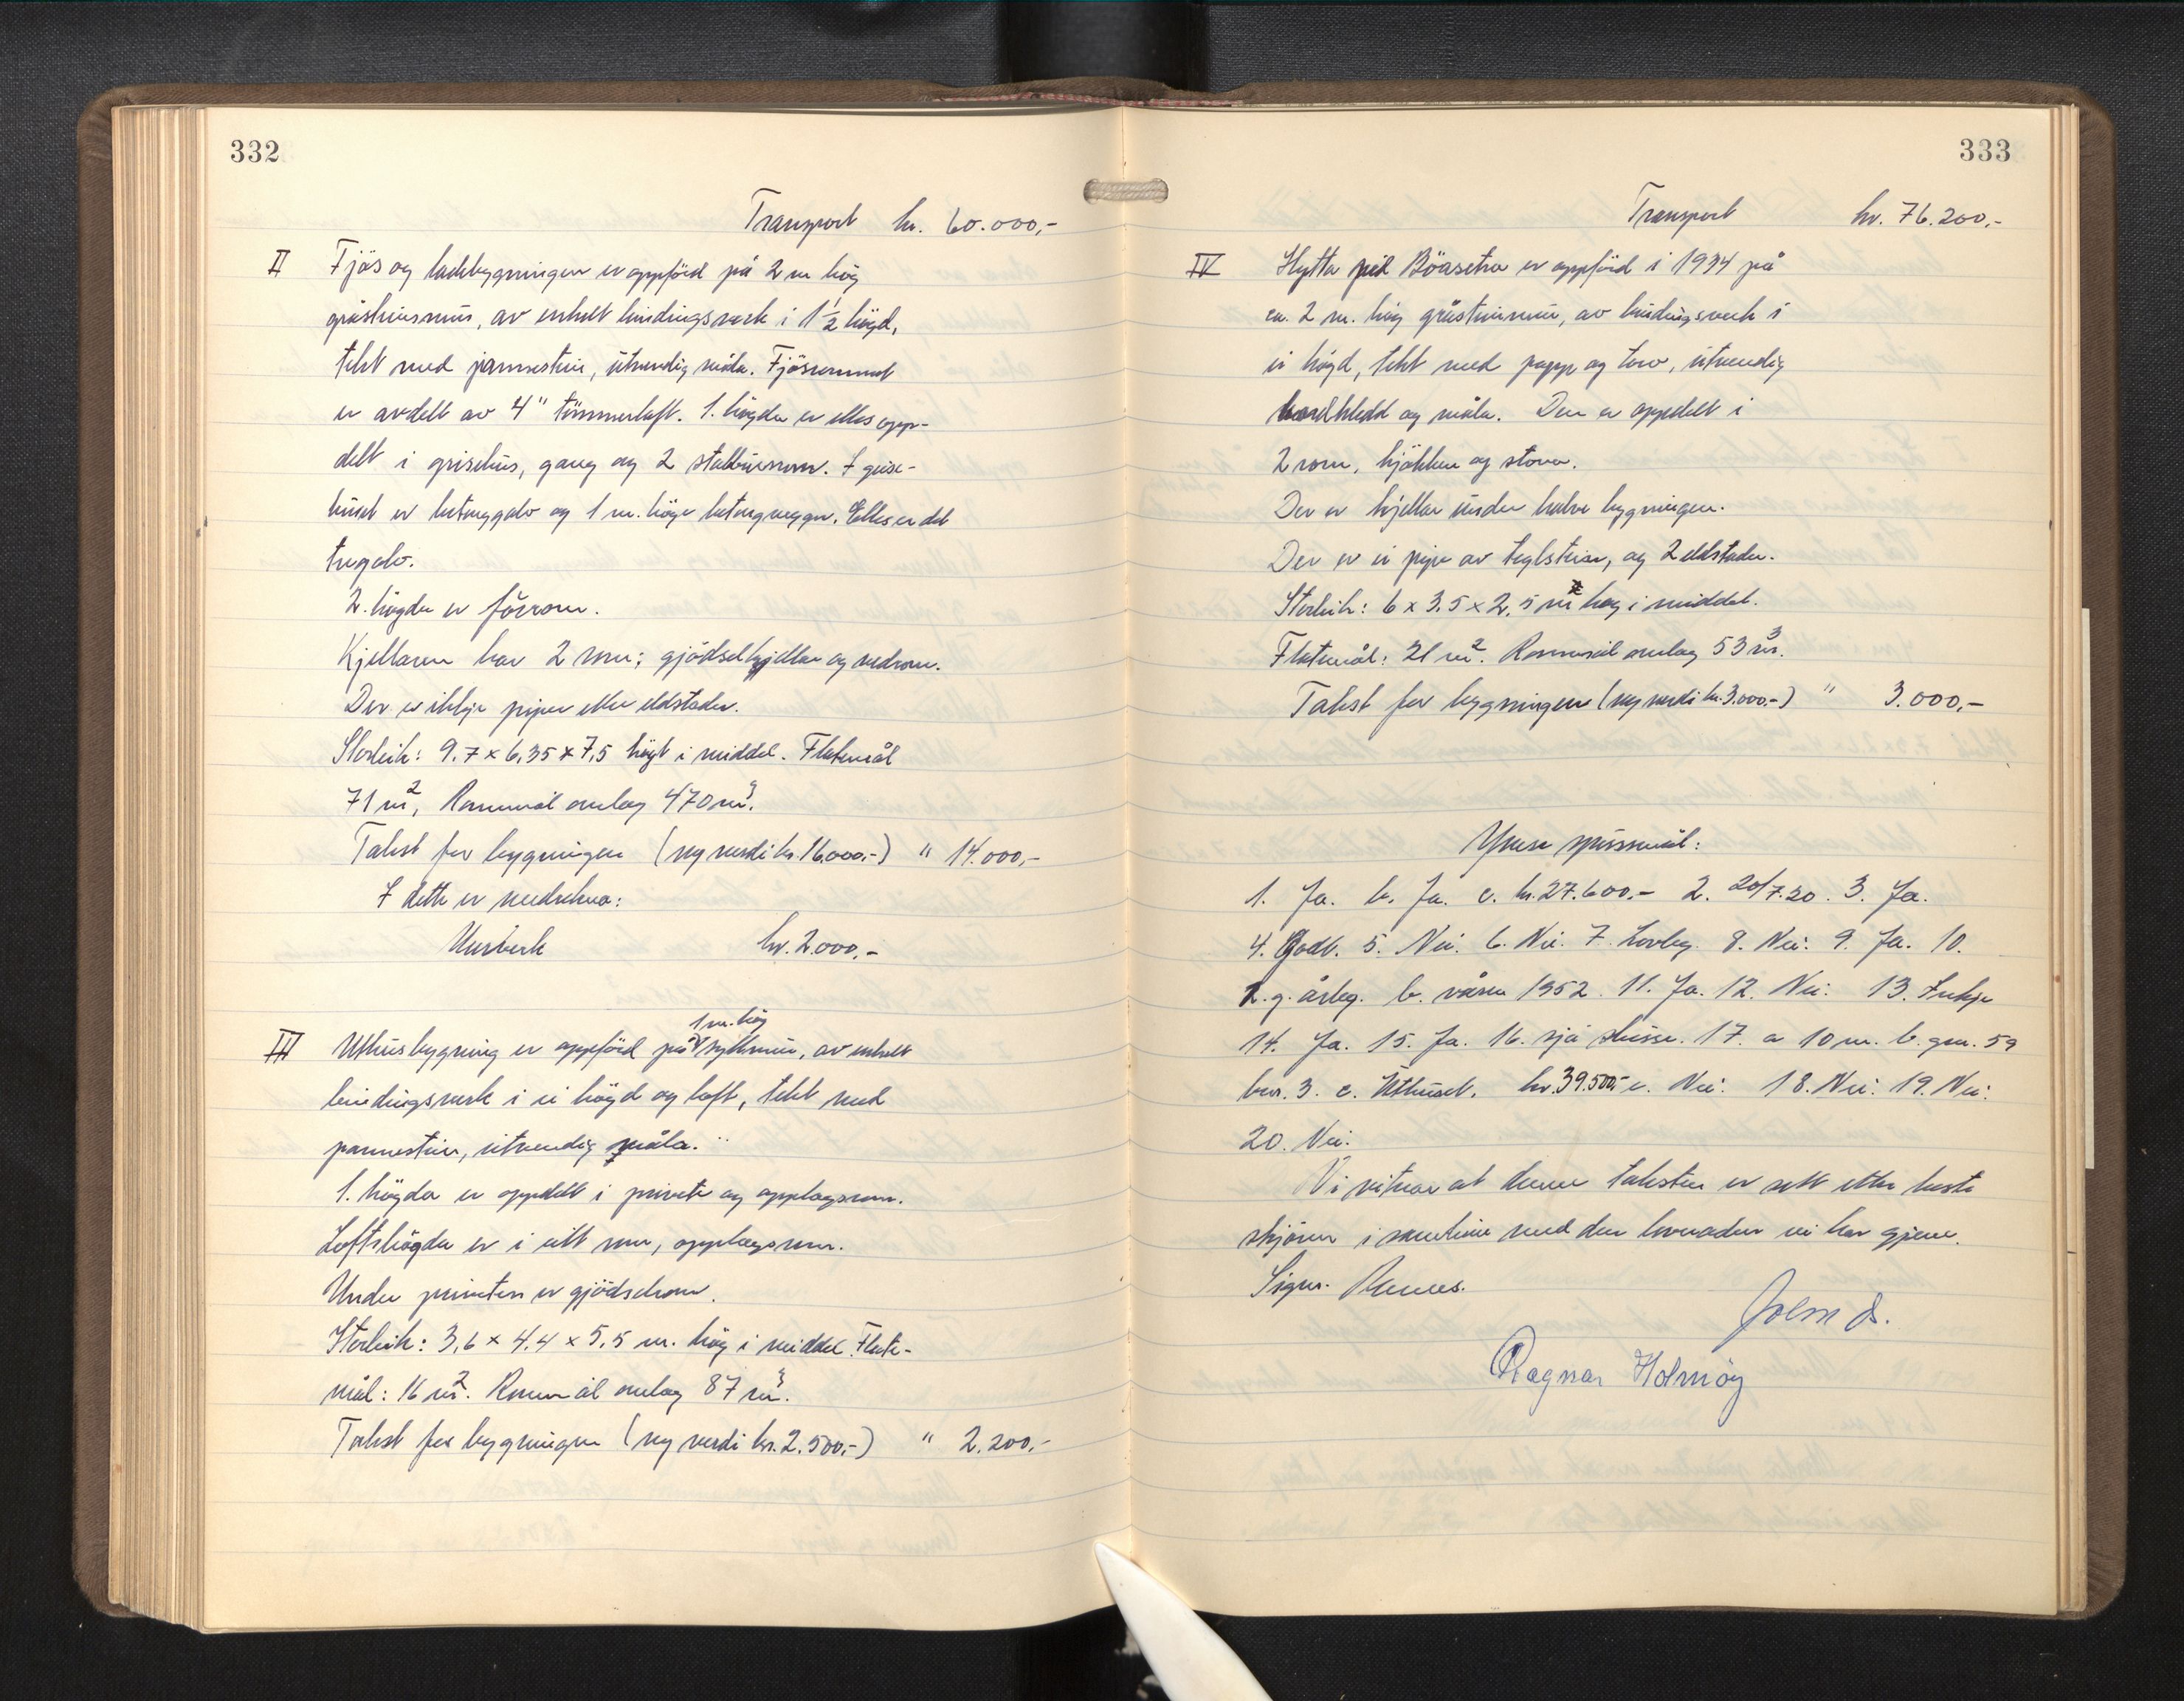 332
Transport kr. 60.000,-
II Fjös og ladebygningen er oppförd på 2 m hög
gråsteinsmur, av enkelt bindingsverk i 1 1/2 högd,
tekt med pannestein, utvendig måla. Fjösrommet
er avdelt av 4" tömmerlaft. 1. högda er elles opp-
delt i grisehus, gang og 2 stallbusrom. I grise-
huset er betonggolv og 1 m. höge betongvegger. Elles er det
tregolv.
2. högda er fôrrom.
Kjellaren har 2 rom; gjödselkjellar og vedrom.
Der er ikkje piper eller eldstader.
Storleik: 9,7 x 6,35 x 7,5 högt i middel. Flatemål
71 m², Rommål omlag 470 m³.
Takst for bygningen (ny verdi kr. 16.000,-) " 14.000,-
I dette er medrekna:
Murverk kr. 2.000,-
III Uthusbygning er oppförd på 1 m. hög syllmur, av enkelt
bindingsverk i ei högd og loft, tekt med
pannestein, utvendig måla.
1. högda er oppdelt i privete og opplagsrom.
Loftshögda er i eitt rom, opplagsrom.
Under priveten er gjödselrom.
Storleik: 3,6 x 4,4 x 5,5 m. hög i middel. Flate-
mål: 16 m². Rommål omlag 87 m³.
Takst for bygningen (ny verdi kr. 2.500,-) " 2.200,-
333
Transport kr. 76.200,-
IV Hytta på Böasetra er oppförd i 1934 på
ca. 2 m. hög gråsteinmur, av bindingsverk i
ei högd, tekt med papp og torv, utvendig
bordkledd og måla. Den er oppdelt i
2 rom, kjökken og stova.
Der er kjellar under halve bygningen.
Der er ei pipe av teglstein, og 2 eldstader.
Storleik: 6 x 3,5 x 2,5 m hög i middel.
Flatemål: 21 m². Rommål omlag 53 m³.
Takst for bygningen (ny verdi kr. 3.000,-) " 3.000,-
Ymse spursmål:
1. Ja. b. Ja. c. kr. 27.600,- 2. 20/7.20. 3. Ja.
4. Godt. 5. Nei. 6. Nei. 7. Lovleg. 8. Nei. 9. Ja. 10.
2.g. årleg. b. våren 1952. 11. Ja. 12. Nei. 13. Inkje
14. Ja. 15. Ja. 16. sjå skisse. 17. a 10 m. b. gnr. 59
bnr. 3. c. Uthuset. kr. 39.500,- e. Nei. 18. Nei. 19. Nei.
20. Nei.
Vi vitnar at denne taksten er sett etter beste
skjönn i samhöve med den lovnaden vi har gjeve.
Sign. Remes.
John S.
Ragnar Holmöy